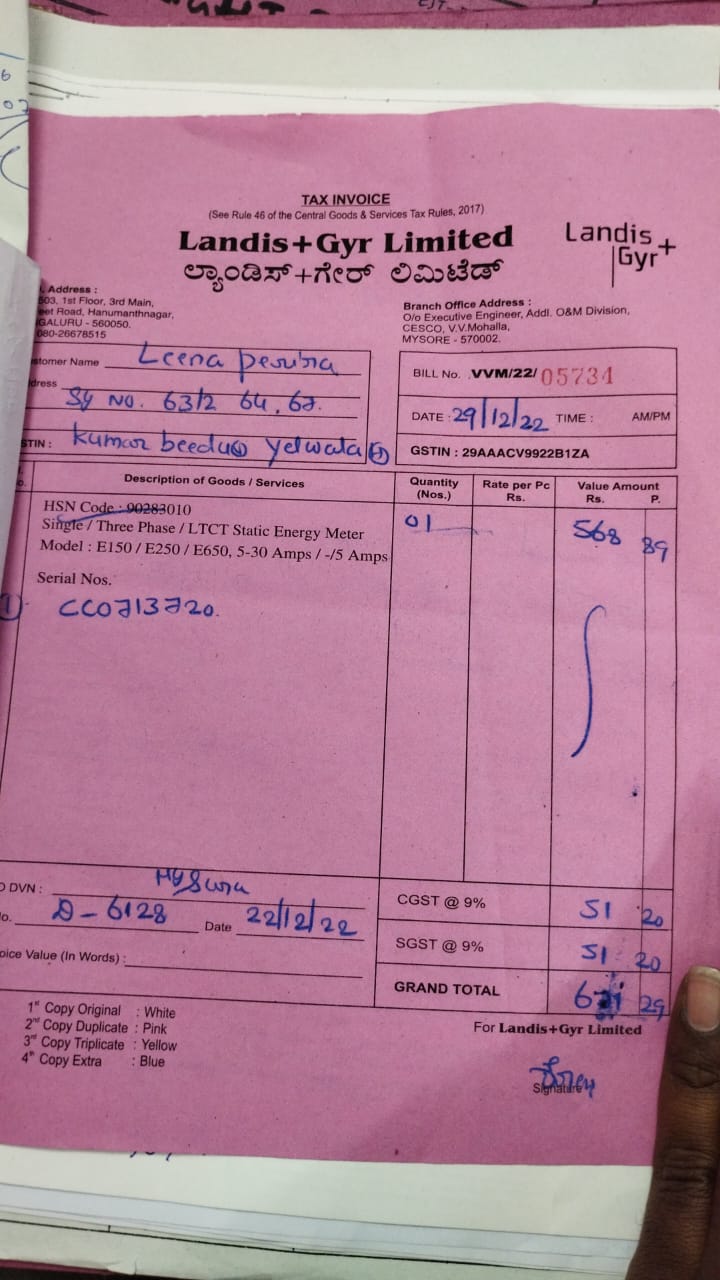 TAX INVOICE
(See Rule 46 of the Central Goods & Services Tax Rules, 2017)
Landis+Gyr Limited
ಲ್ಯಾಂಡಿಸ್+ಗೇರ್ ಲಿಮಿಟೆಡ್
Landis
Gyr+
Address :
503, 1st Floor, 3rd Main,
eet Road, Hanumanthnagar,
GALURU - 560050.
080-26678515
Branch Office Address :
O/o Executive Engineer, Addl. O&M Division,
CESCO, V.V.Mohalla,
MYSORE - 570002.
stomer Name Leena
dress Sy No. 63/2 64, 67.
STIN : Kumar beedu yelwala
BILL No. .VVM/22/ 05734
DATE : 29/12/22 TIME : AM/PM
GSTIN : 29AAACV9922B1ZA
Description of Goods / Services
Quantity (Nos.)
Rate per Pc Rs.
Value Amount Rs. P.
HSN Code : 90283010
Single / Three Phase / LTCT Static Energy Meter 01 568 89
Model : E150 / E250 / E650, 5-30 Amps / -/5 Amps
Serial Nos.
1 CC0713720.
DVN :
o. D-6128 Date 22/12/22
oice Value (In Words) :
CGST @ 9% 51 20
SGST @ 9% 51 20
GRAND TOTAL 29
1st Copy Original : White
2nd Copy Duplicate : Pink
3rd Copy Triplicate : Yellow
4th Copy Extra : Blue
For Landis+Gyr Limited
Signature